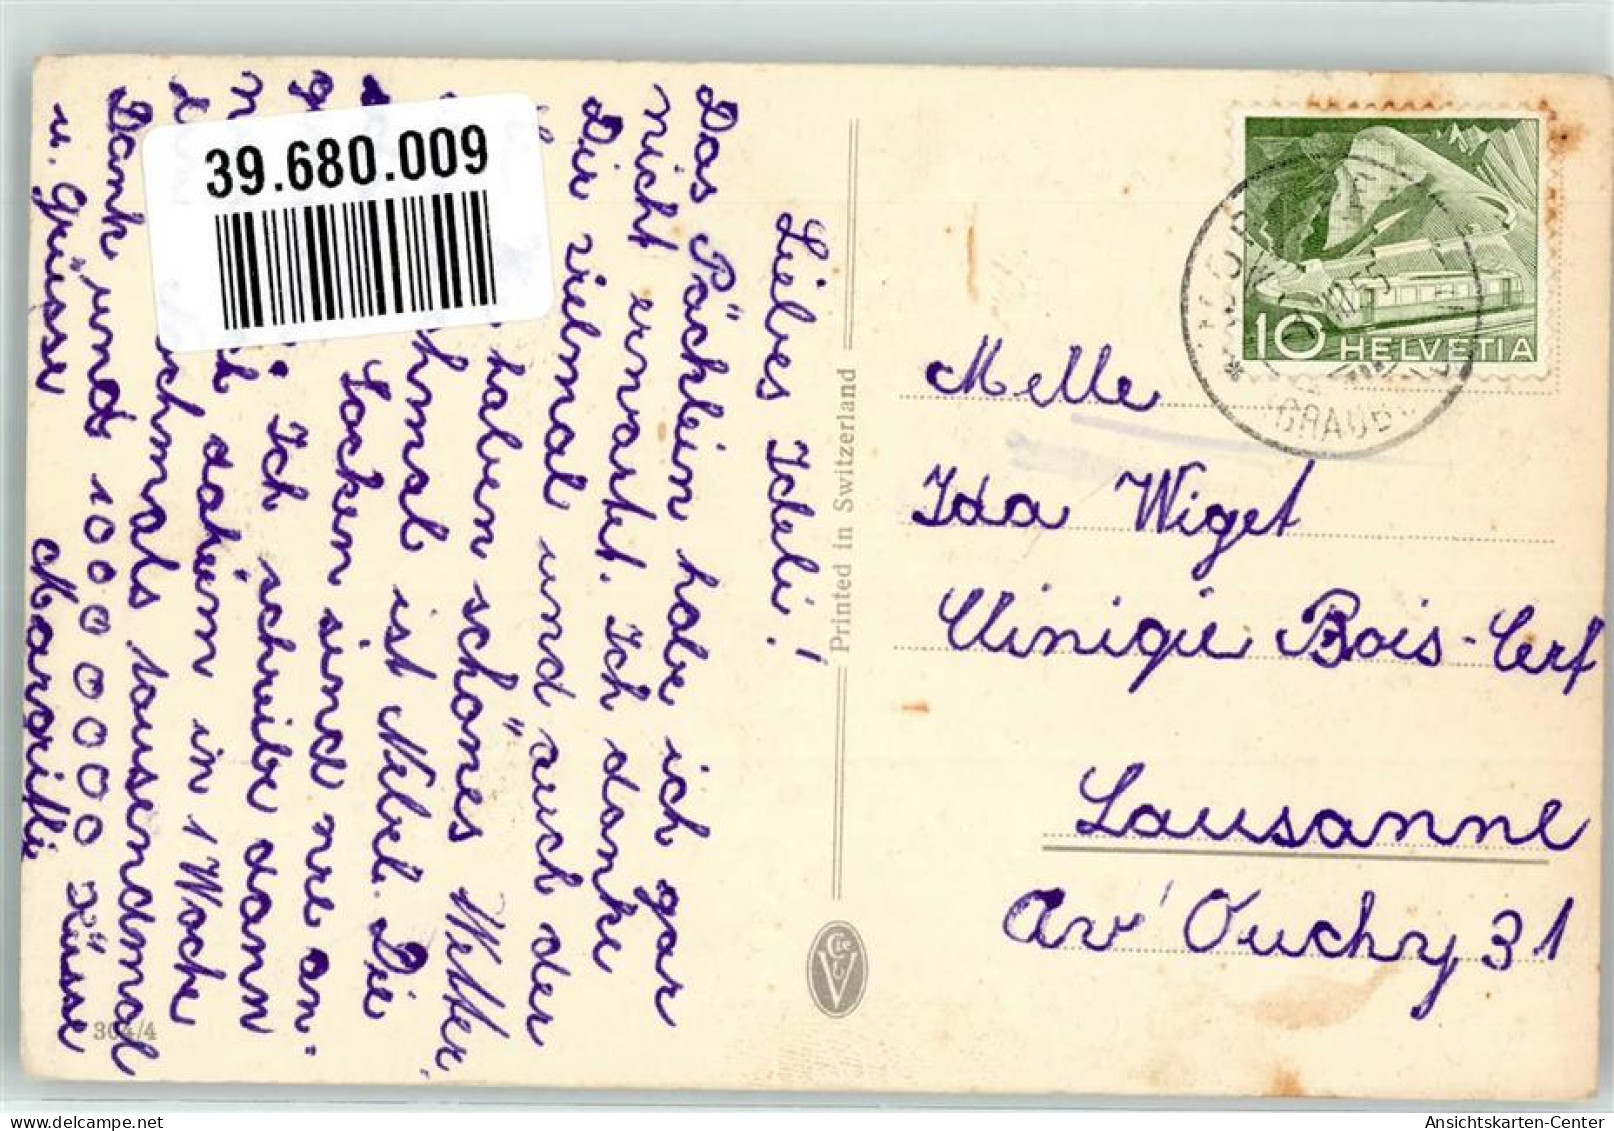 39.680.009
Liebes Ideli!
Das Päcklein habe ich gar
nicht erwartet. Ich danke
Dir vielmal und auch der
haben schönes Wetter,
hmal ist Nebel. Die
Socken sind mre an-
Ich schreibe dann
daheim in 1 Woche
nochmals tausendmal
Dank und 1000000000 Küsse
u. Grüsse
Margritli
304/4
Printed in Switzerland
10 HELVETIA
GRAUB
Melle
Ida Wiget
Clinique Bois-Cerf
Lausanne
Av' Ouchy 31
Ansichtskarten-Center